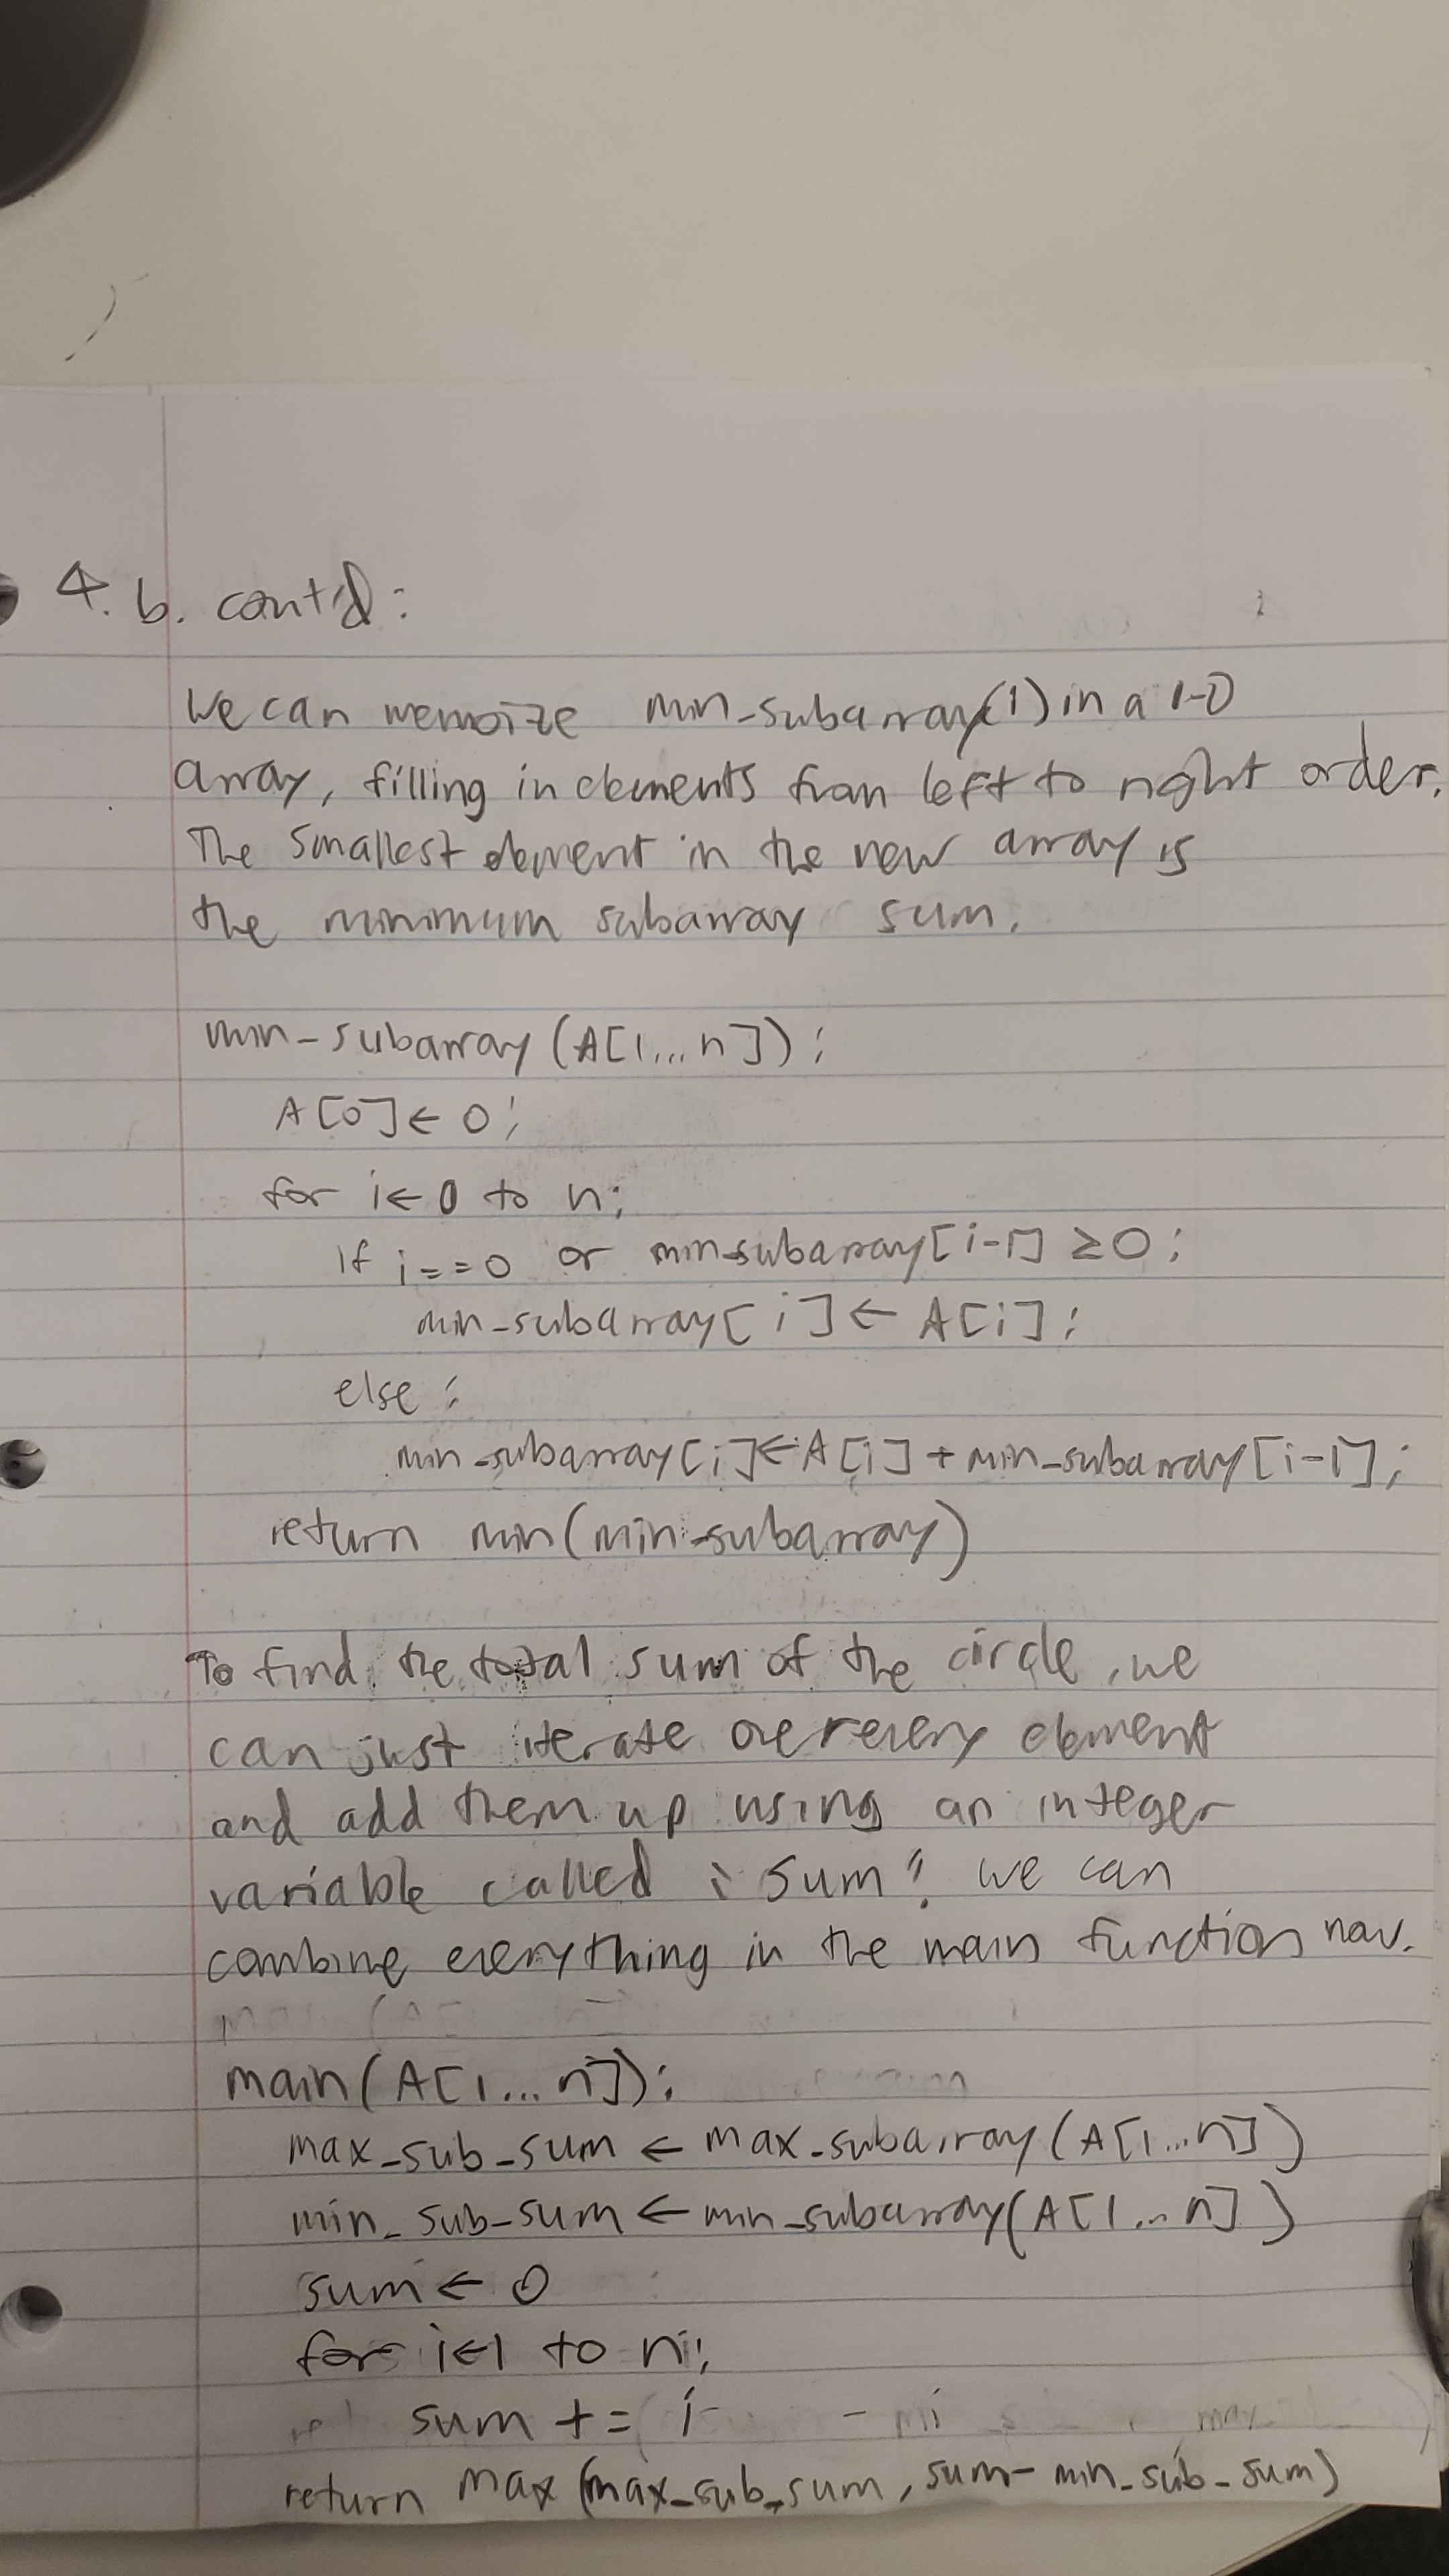 4. b. cont'd:
We can memoize min_subarray(i) in a 1-D
array, filling in elements from left to right order.
The smallest element in the new array is
the minimum subarray sum.
min_subarray(A[1...n]):
A[0] ← 0;
for i ← 0 to n:
if i == 0 or min_subarray[i-1] ≥ 0:
min_subarray[i] ← A[i];
else:
min_subarray[i] ← A[i] + min_subarray[i-1];
return min(min_subarray)
To find the total sum of the circle, we
can just iterate over every element
and add them up using an integer
variable called "sum". We can
combine everything in the main function now.
main(A[1...n]):
max_sub_sum ← max_subarray(A[1...n])
min_sub_sum ← min_subarray(A[1...n])
sum ← 0
for i ← 1 to n:
sum += i
return max(max_sub_sum, sum - min_sub_sum)